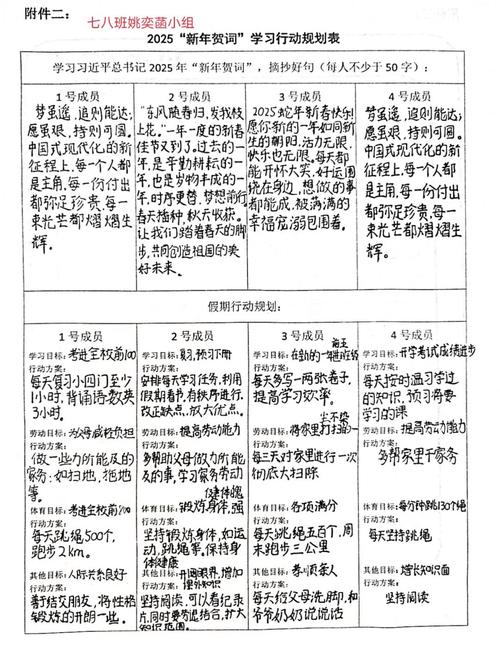 附件二：
七八班姚奕菡小组
2025“新年贺词”学习行动规划表
学习习近平总书记2025年“新年贺词”，摘抄好句（每人不少于50字）：
1号成员
梦虽遥，追则能达；
愿虽艰，持则可圆。
中国式现代化的新
征程上，每一个人都
是主角，每一份付出
都弥足珍贵，每一
束光芒都熠熠生
辉。
2号成员
“东风随春归，发我枝
上花。”一年一度的新春
佳节又到了。过去的一
年，是辛勤耕耘的一
年，也是岁物丰成的一
年，时序更替，梦想前行
春天播种，秋天收获。
让我们踏着春天的脚
步，共同创造祖国的美
好未来。
3号成员
2025蛇年新春快乐！
愿你新的一年如同新
生的朝阳，活力无限，
快乐也无限，每天都
能开怀大笑，好运围
绕在身边，想做的事
都能成，被满满的
幸福宠溺包围着。
4号成员
梦虽遥，追则能达；
愿虽艰，持则可圆。
中国式现代化的新
征程上，每一个人都
是主角，每一份付出
都弥足珍贵，每一
束光芒都熠熠生
辉。
假期行动规划：
1号成员
学习目标：考进全校前100
行动方案：
每天复习小四门至少
1小时，背诵语数英
3小时。
劳动目标：为父母减轻负担
行动方案：
做一些力所能及的
家务：如扫地，拖地
等。
体育目标：考进全校前100
行动方案：
每天跳绳500个，
跑步2km。
其他目标：人际关系良好
行动方案：
善于结交朋友，将性格
锻炼的开朗一些。
2号成员
学习目标：复习，预习下册
行动方案：
安排每天学习任务，利用
假期春节，有秩序进行，
改正缺点，放大优点。
劳动目标：提高劳动能力
行动方案：
多帮助父母做力所能
及的事，学习家务劳动
体育目标：锻炼身体，强
健体魄
行动方案：
坚持锻炼身体，如运
动，跳绳等，保持身
体健康
其他目标：开阔眼界，增加
课外知识
行动方案：
坚持阅读，可以看纪录
片，同时要劳逸结合，扩大
知识范围。
3号成员
学习目标：在劲的一批班级
前五
行动方案：
每天多写一两张卷子，
提高学习效率。
劳动目标：将家里打扫的一
尘不染
行动方案：
每三天对家里进行一次
彻底大扫除
体育目标：各项满分
行动方案：
每天跳绳五百个，周
末跑步三公里
其他目标：孝顺亲人
行动方案：
每天给父母洗脚，和
爷爷奶奶说说话
4号成员
学习目标：开学考试成绩进步
行动方案：
每天按时温习学过
的知识，预习需要
学习的课
劳动目标：提高劳动能力
行动方案：
多帮家里干家务
体育目标：每分钟跳130个绳
行动方案：
每天坚持跳绳
其他目标：增长知识面
行动方案：
坚持阅读